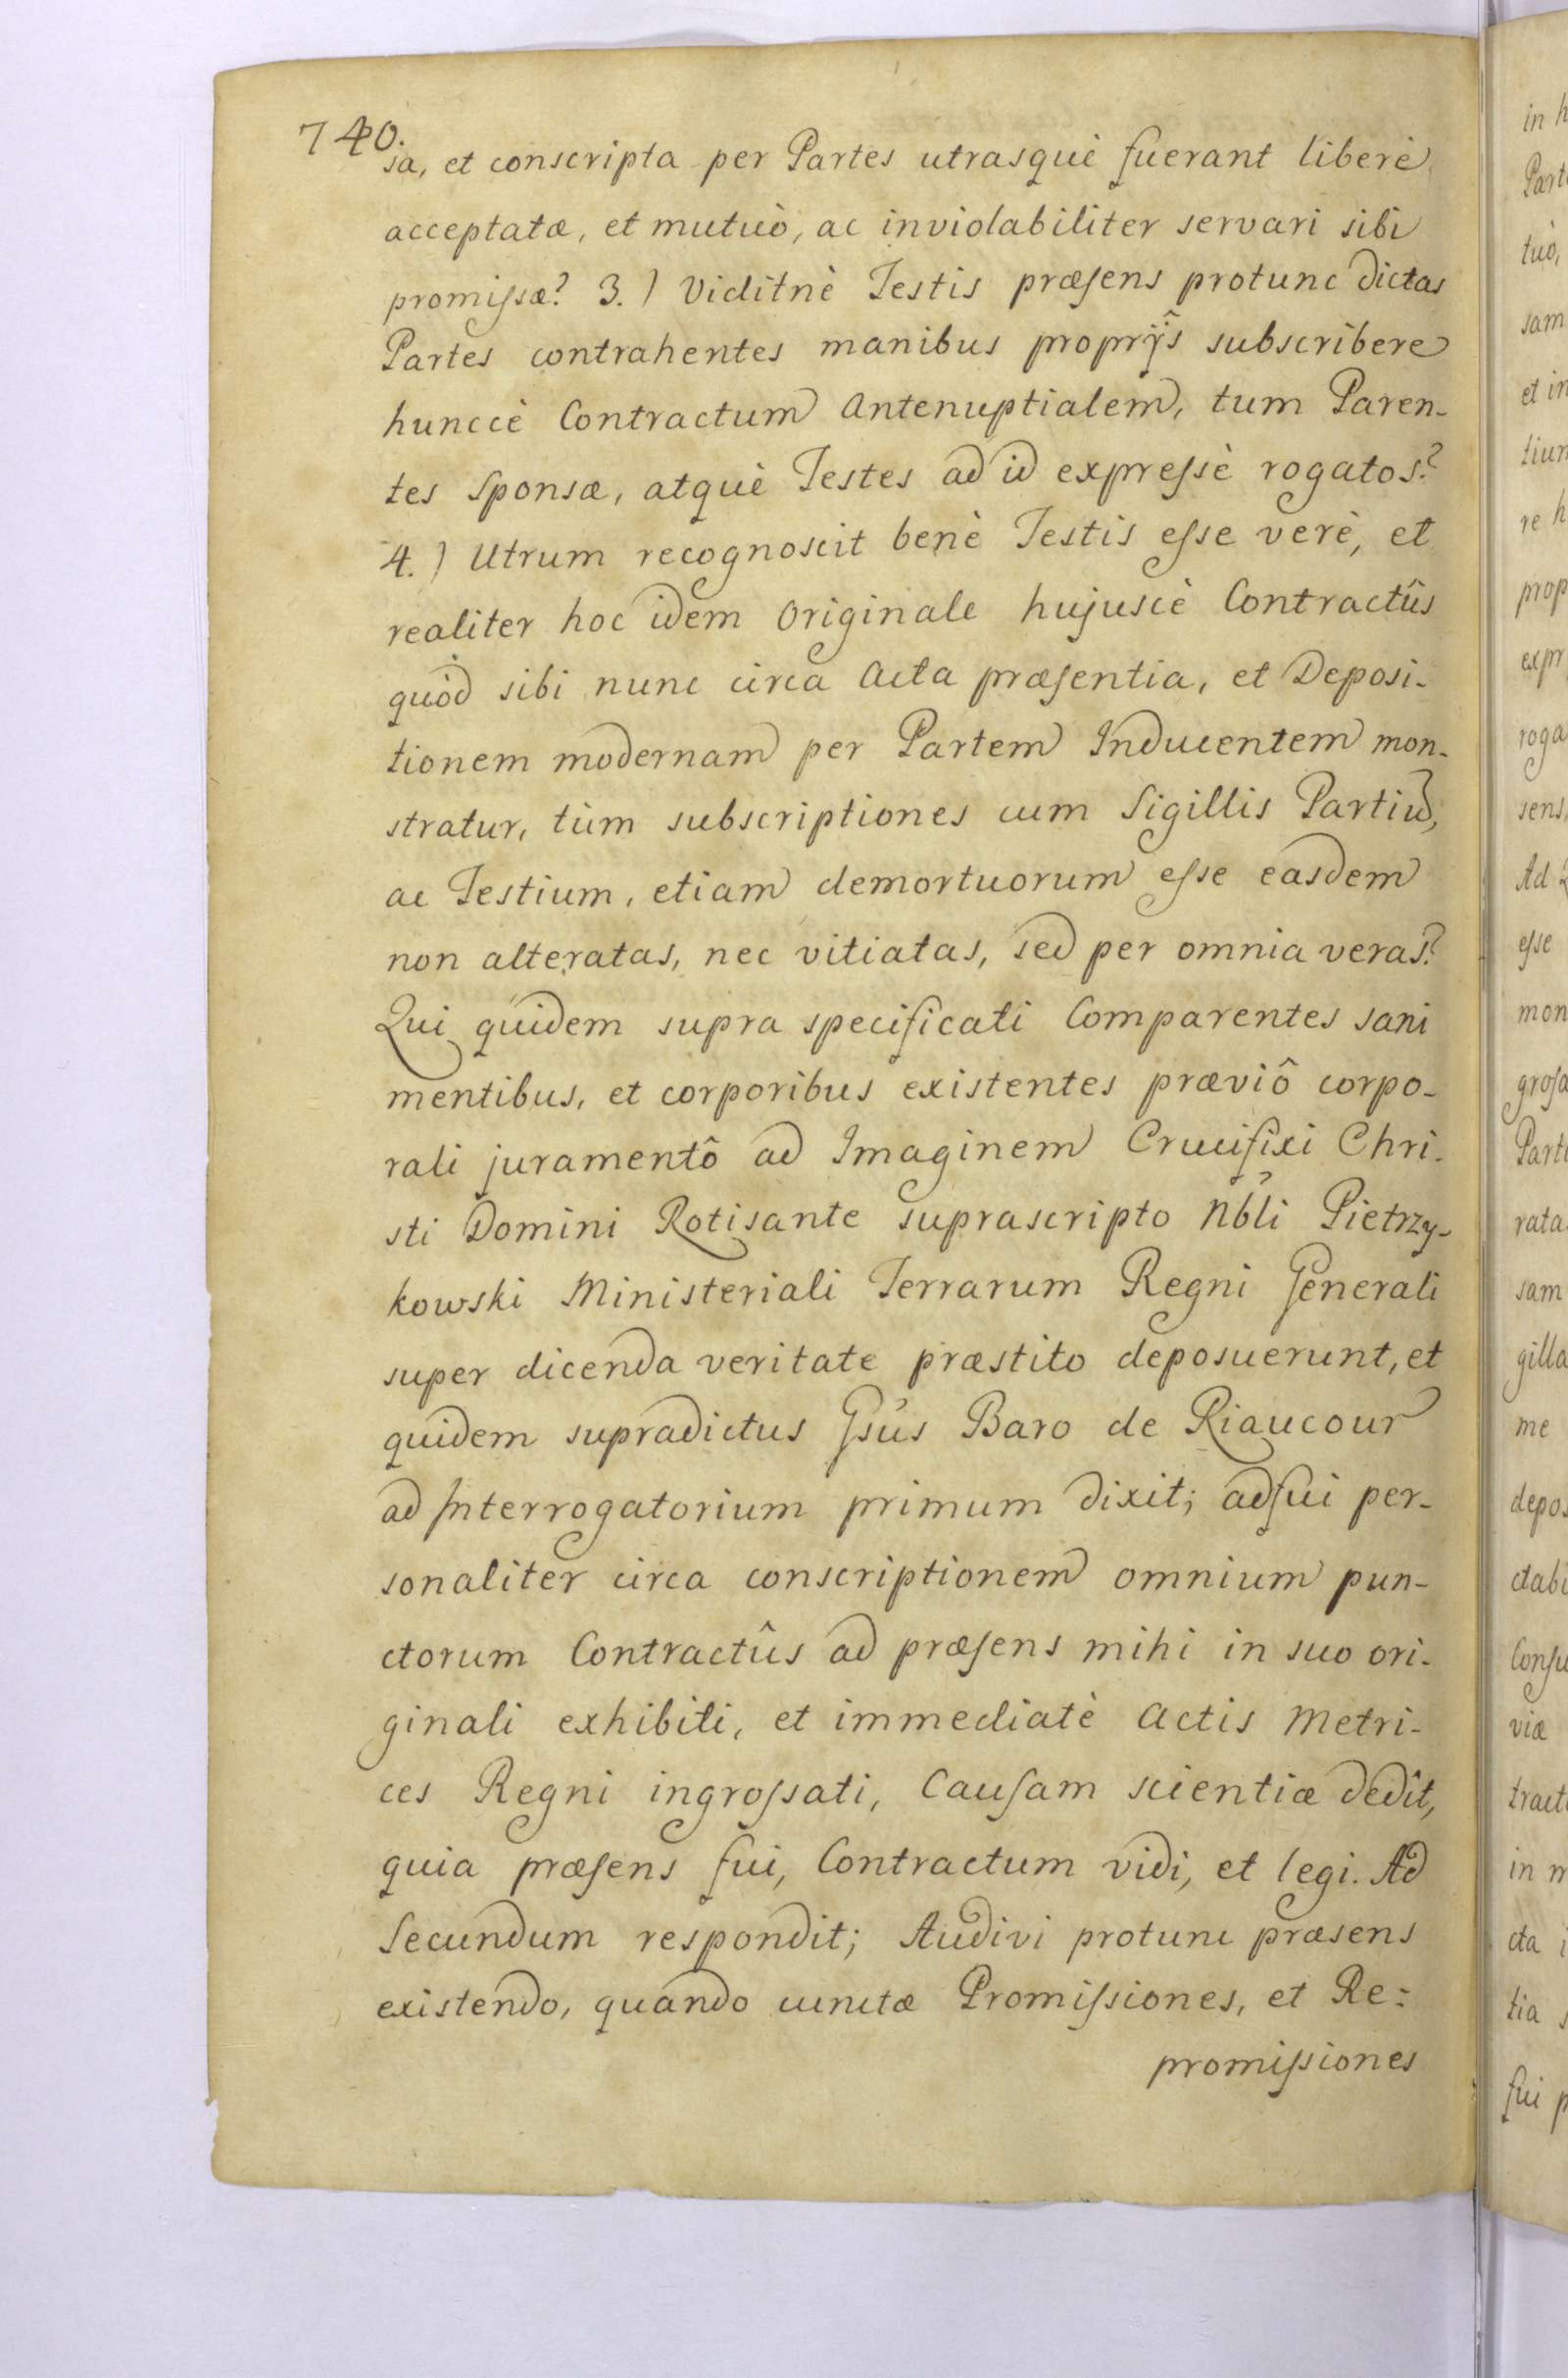 740.
sa, et conscripta per Partes utrasquè fuerant liberè
acceptatæ, et mutuò, ac inviolabiliter servari sibi
promiſsæ? 3.) Viditnè Testis præſens protunc dictas
Partes contrahentes manibus proprijs subscribere
huncce Contractum Antenuptialem, tum Paren-
tes Sponsæ, atquè Testes ad id expreſsè rogatos?
4.) Utrum recognoscit benè Testis eſse verè, et
realiter hoc idem Originale hujuscè Contractûs
quòd sibi nunc circa Acta præſentia, et Deposi-
tionem modernam per Partem Inducentem mon-
stratur, tùm subscriptiones cum Sigillis Partiũ,
ac Testium, etiam demortuorum eſse easdem
non alteratas, nec vitiatas, sed per omnia veras?
Qui quidem supra specificati Comparentes sani
mentibus, et corporibus existentes præviô corpo-
rali juramentô ad Imaginem Crucifixi Chri-
sti Domini Rotisante suprascripto Nbli Pietrzy-
kowski Ministeriali Terrarum Regni Generali
super dicenda veritate præstito deposuerunt, et
quidem supradictus Gsus Baro de Riaucour
ad Interrogatorium primum dixit; adfui per-
sonaliter circa conscriptionem omnium pun-
ctorum Contractûs ad præſens mihi in suo ori-
ginali exhibiti, et immediatè Actis Metri-
ces Regni ingroſsati, Cauſam scientiæ dedit,
quia præſens fui, Contractum vidi, et legi. Ad
Secundum respondit; Audivi protunc præsens
existendo, quando cunctæ Promiſsiones, et Re-
promiſsiones
in h
Part
tuò,
sam
et in
tiun
re h
prop
expr
roga
sens,
Ad
eſse
mon
groſa
Part
rata
sam
gilla
me
depos
ctabi
Conſu
viæ
tract
in m
cta i
tia s
fui p